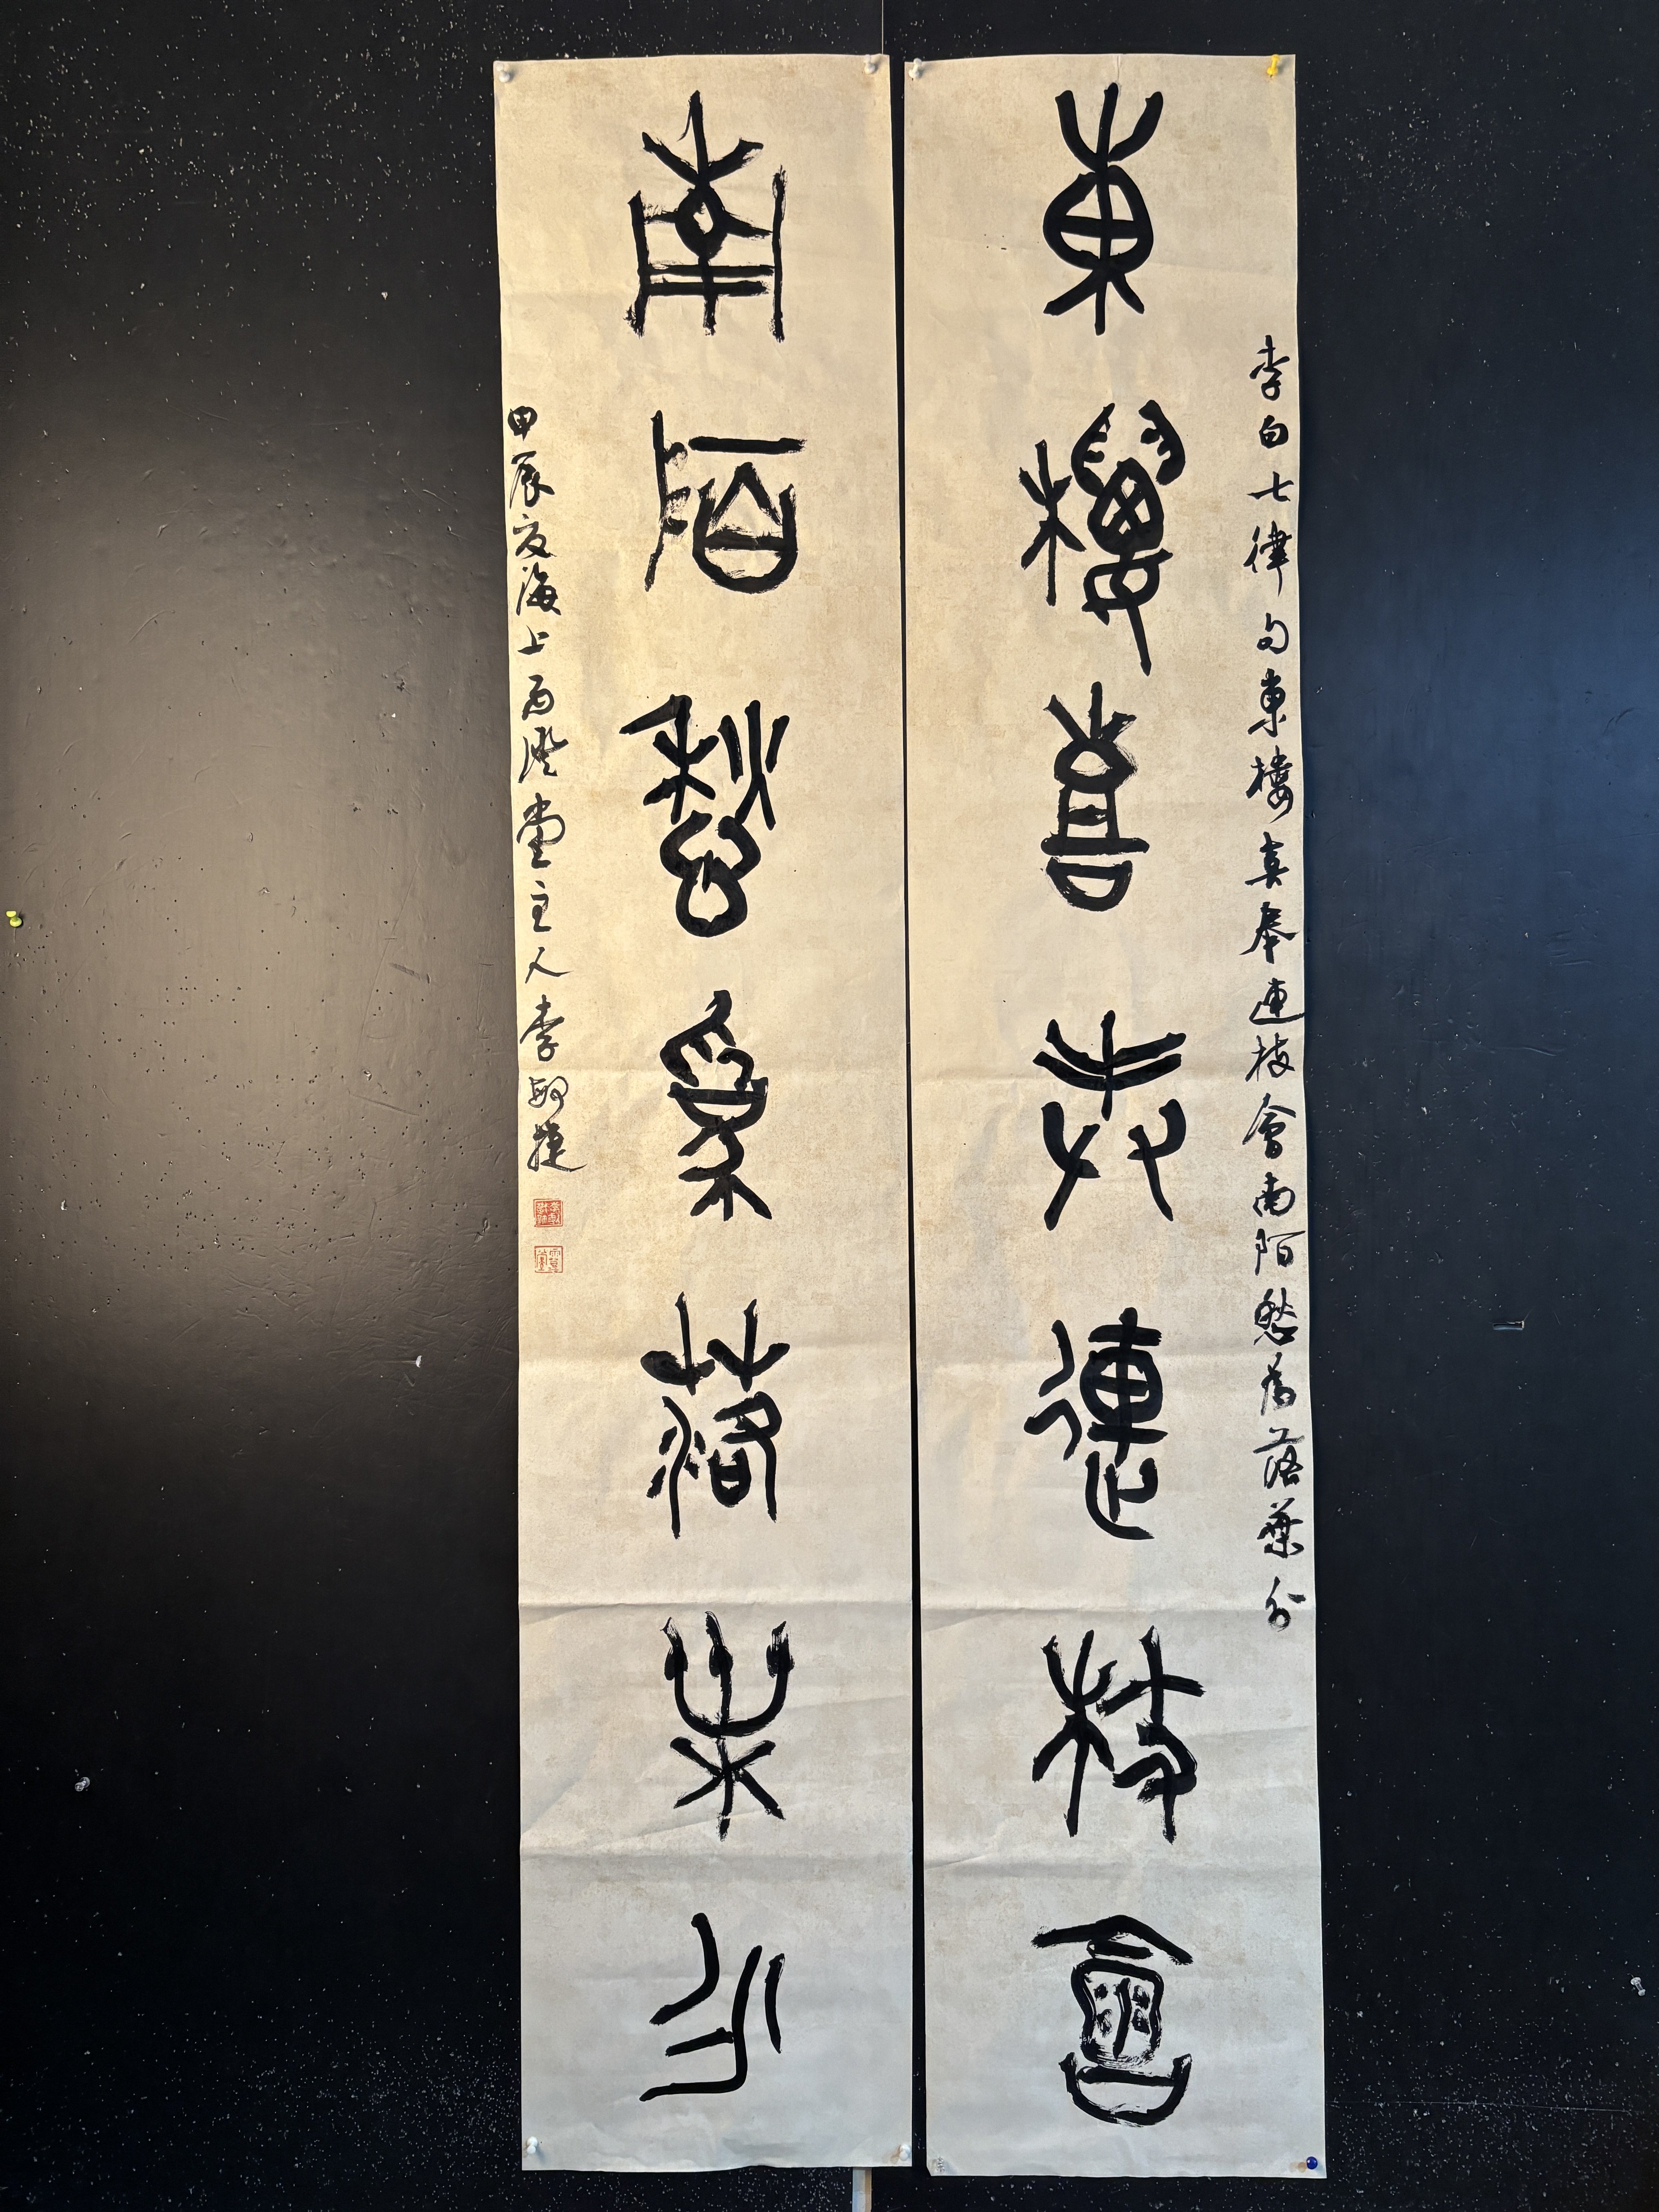 李白七律句東樓喜奉連枝會南陌愁為落葉分
東樓喜奉連枝會
南陌愁為落葉分
甲辰夏海上雨堂主人李捷